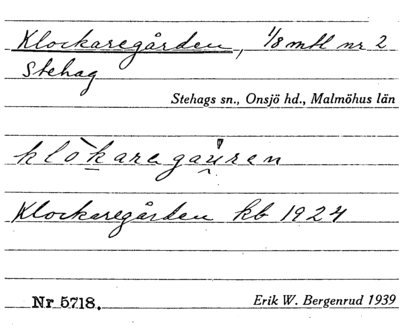 Klockaregården, 1/8 mtl nr 2
Stehag
Stehags sn., Onsjö hd., Malmöhus län
klòkaregaůren
Klockaregården kb 1924
Nr 5718. Erik W. Bergenrud 1939